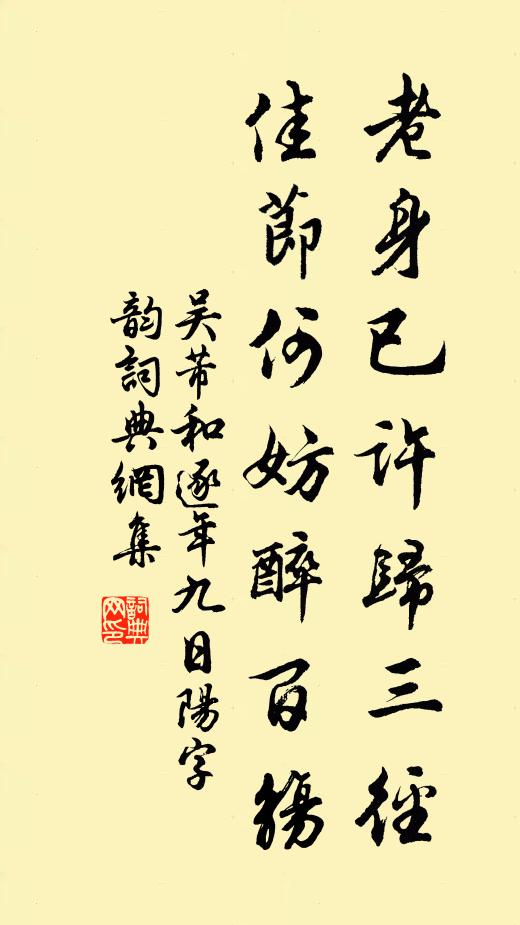 老身已許歸三徑
佳節何妨醉百觴
吴芾和逐年九日陽字
韵詞典網集
詞典网印